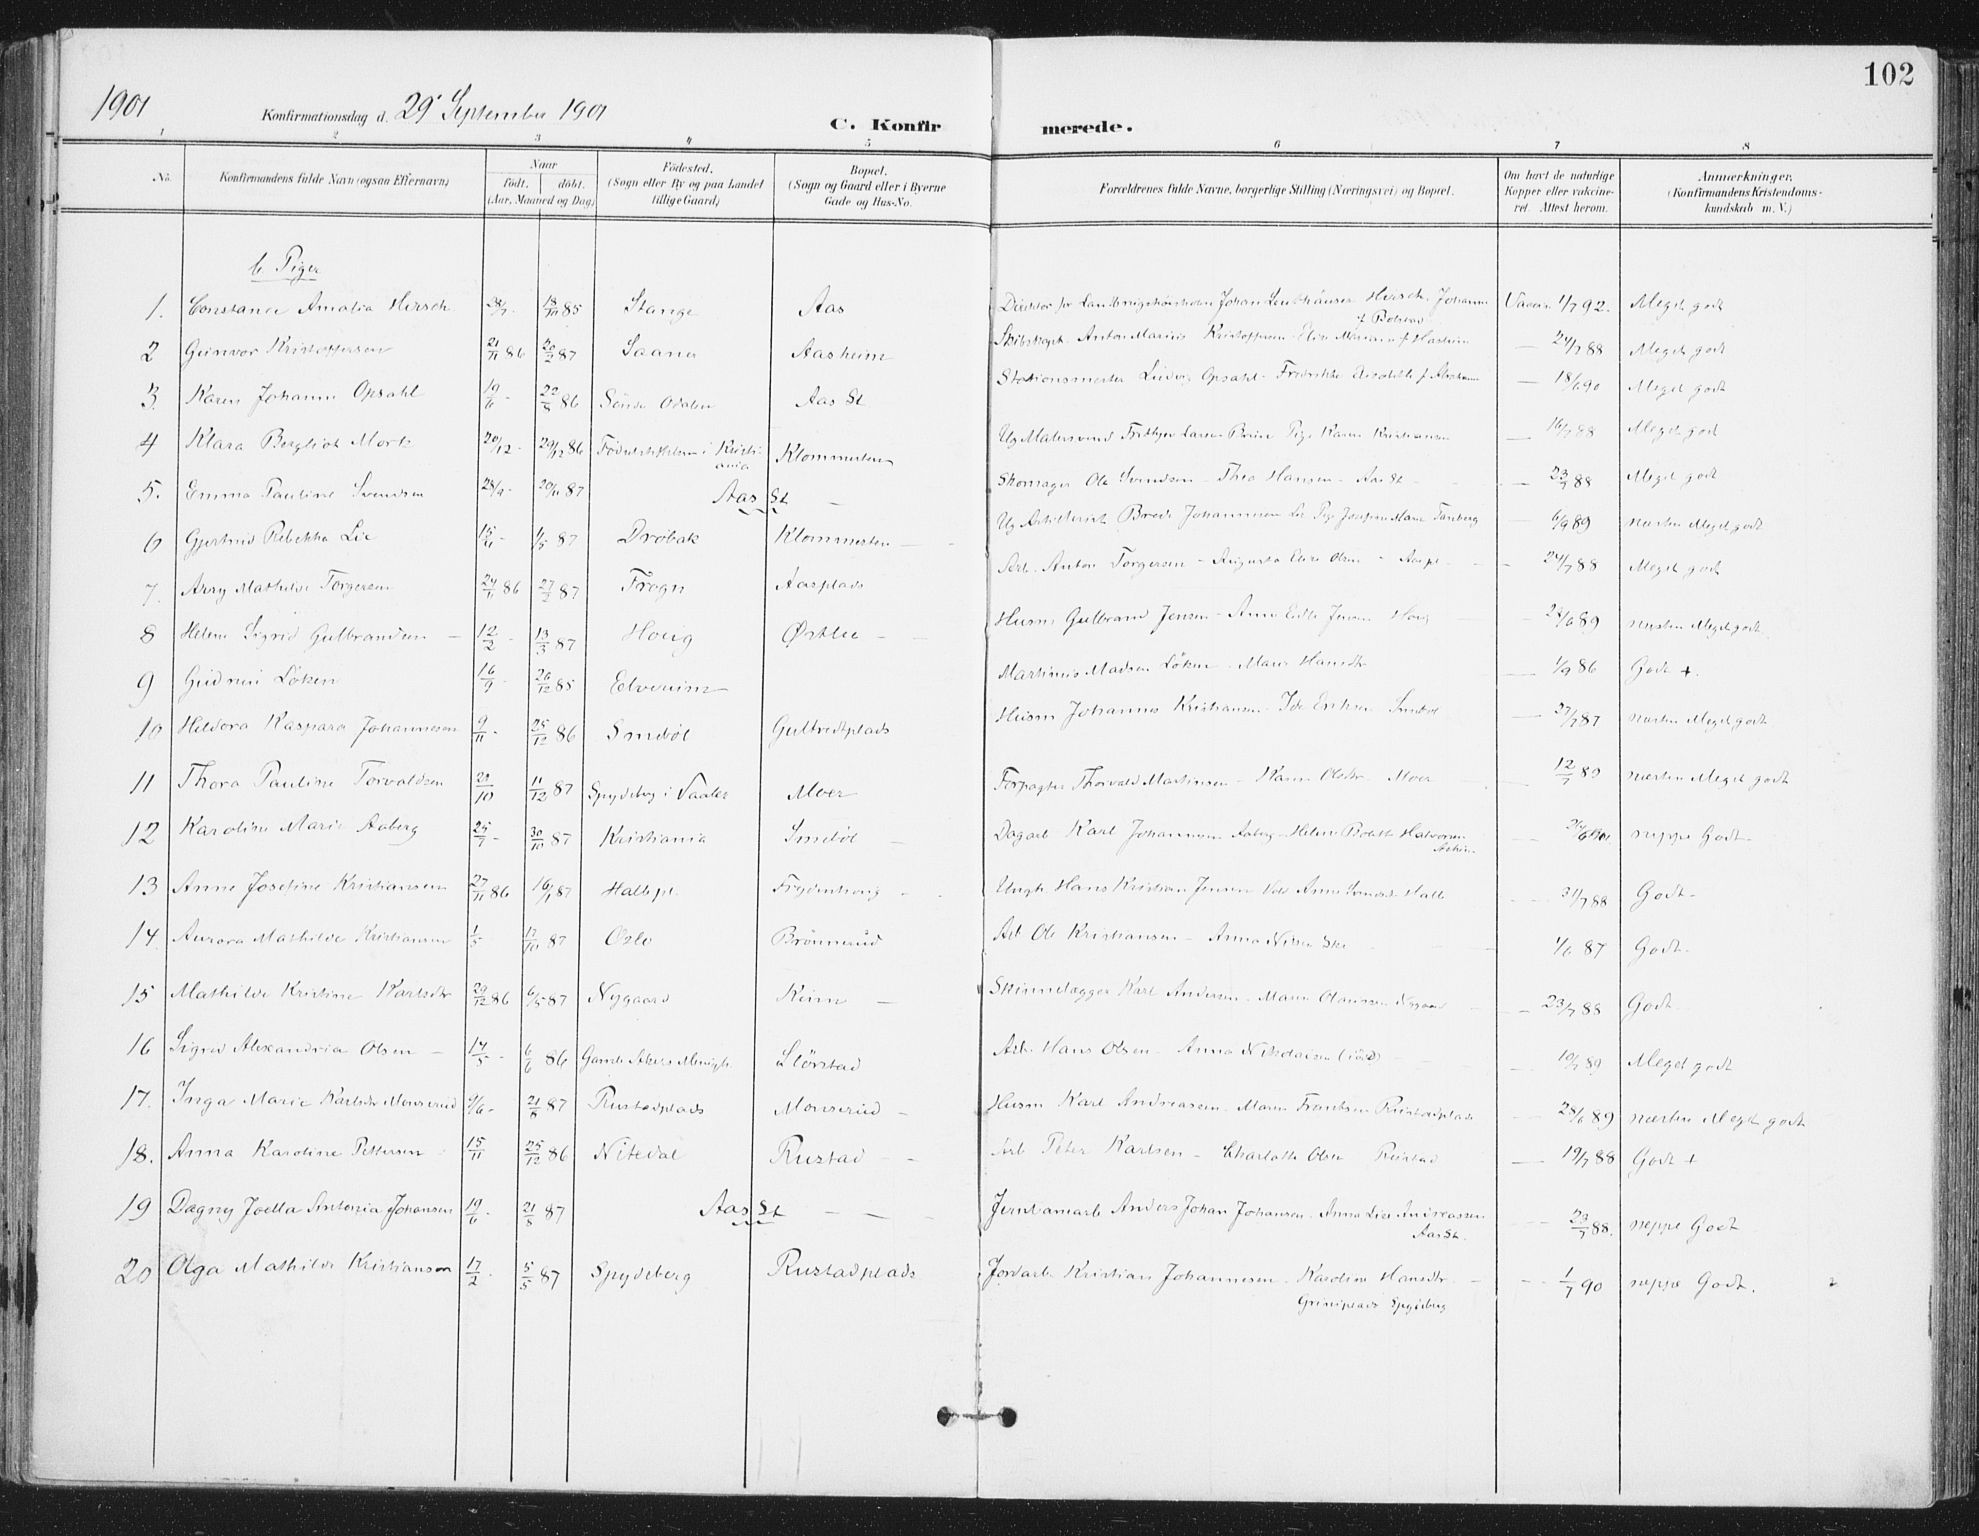 102
1901 Konfirmationsdag d. 29 September 1901
C. Konfirmerede.
1 2 3 4 5 6 7 8
No. Konfirmandens fulde Navn (ogsaa Efternavn) Naar født. døbt. (Aar, Maaned og Dag) Födested. (Sogn eller By og paa Landet tillige Gaard) Bopæl. (Sogn og Gaard eller i Byerne Gade og Hus-No. Forældrenes fulde Navne, borgerlige Stilling (Næringsvei) og Bopæl. Om havt de naturlige Kopper eller vakcineret. Attest herom. Anmærkninger. (Konfirmandens Kristendomskundskab m. V.)
b Piger
1. Constance Amalia Hirsch 85 Stange Aas Johan Hirsch. Johanne f. Bolstad Vaccin. 1/7 92. Meget godt
2 Gunvor Kristoffersen 21/11 86 20/2 87 Saaner Aasheim Skibskapt. Anton Marius Kristoffersen 24/7 88 Meget godt
3. Karen Johanne Opsahl 22/8 86 Søndr Odalen Aas St. Stationsmester Ludvig Opsahl - Fredrikke 18/6 90 Meget godt
4 Klara Bergliot Mork 20/12 - 29/12 86 Fødselsstiftelsen i Kristiania Klommesten Larsen Pige Karen Kristiansen 16/7 88 Meget godt
5. Emma Pauline Svendsen 28/9 - 20/11 87 Aas St Skomager Ole Svendsen - Thea Hansen - Aas St 23/7 88 Meget godt
6 Gjertrud Rebekka Lie 87 Drøbak Klommesten Johannesen Lie Pige Josefine Marie Tanberg 6/9 89 næsten Meget godt
7. Mathilde Torgersen 24/11 86 27/2 87 Frogn Aasplads Arb. Anton Torgersen - Augusta Olsen - Aaspl. 24/7 88 Meget godt
8 Helene Sigrid Gulbrandsen 12/2 - 13/3 87 Houg Østlie Husm Gulbrand Jensen - Jensen Houg 28/6 89 næsten Meget godt
9 Gudrun Løken 16/9 - 26/12 85 Martinius Madsen Løken - Maren Hansdtr 1/9 86 Godt +.
10 Heldora Kaspara Johannesen 9/11 - 25/12 86 Smebøl Gultvedtplads Husm Johannes Kristiansen - Ida Eriksen Smebøl 27/7 87 næsten Meget godt
11 Thora Pauline Torvaldsen 11/12 87 Spydeberg i Vaaler Moer Forpagter Thorvald Martinsen - Karen Olsdtr Moer 12/7 89 næsten Meget godt
12 Karoline Marie Aaberg 25/7 - 30/10 87 Kristiania Smebøl Dagarb Karl Johannesen Aaberg - Helene Bolette Halvorsen neppe Godt -
13 Anne Josefine Kristiansen 27/11 86 16/1 87 Halbpl Frydenhaug Ungk Hans Kristian Jensen Anne 31/7 88 Godt -
14. Aurora Mathilde Kristiansen 1/5 17/10 87 Oslo Brønnerud Arb Ole Kristiansen - Anna 1/6 87 Godt -
15 Mathilde Kristine Karlsdtr 29/12 86 6/5 87 Nygaard Keim Skindlægger Karl Andersen - Maren Nygaard 23/7 88 Godt
16 Sigrid Alexandria Olsen 14/5 - 6/6 86 Gamle Akers Menigh. Størstad Arb. Hans Olsen - Anna Nikolaisen 10/7 89 Meget godt
17. Inga Marie Karlsdtr Monserud 9/6 - 21/8 87 Rustadplads Monserud Husm Karl Andreassen - Maren Frantsen Rustadplads 28/6 89 næsten Meget godt
18. Anna Karoline Pettersen 15/11 25/12 86 Nitedal Rustad Arb Peter Karlsen - Charlotte Olsen Rustad 19/7 88 Godt +
19 Dagny Joella Antonia Johansen 19/6 - 21/8 87 Aas St Jernbanearb Anders Johan Johansen - Anna Lise Andreassen Aas St. 23/7 88. neppe Godt
20 Olga Mathilde Kristiansen 17/2 - 5/5 87 Spydeberg Rustadplads Jordarb Kristian Johannesen - Karoline Hansdtr Griniplads Spydeberg 1/7 90 neppe Godt.